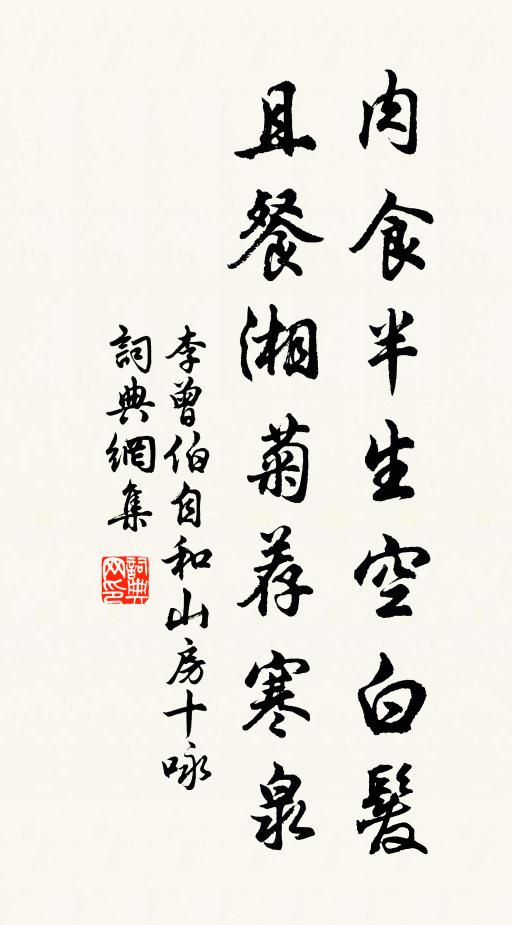 肉食半生空白髮
且餐湘菊荐寒泉
李曾伯自和山房十咏
詞典網集
詞典網印